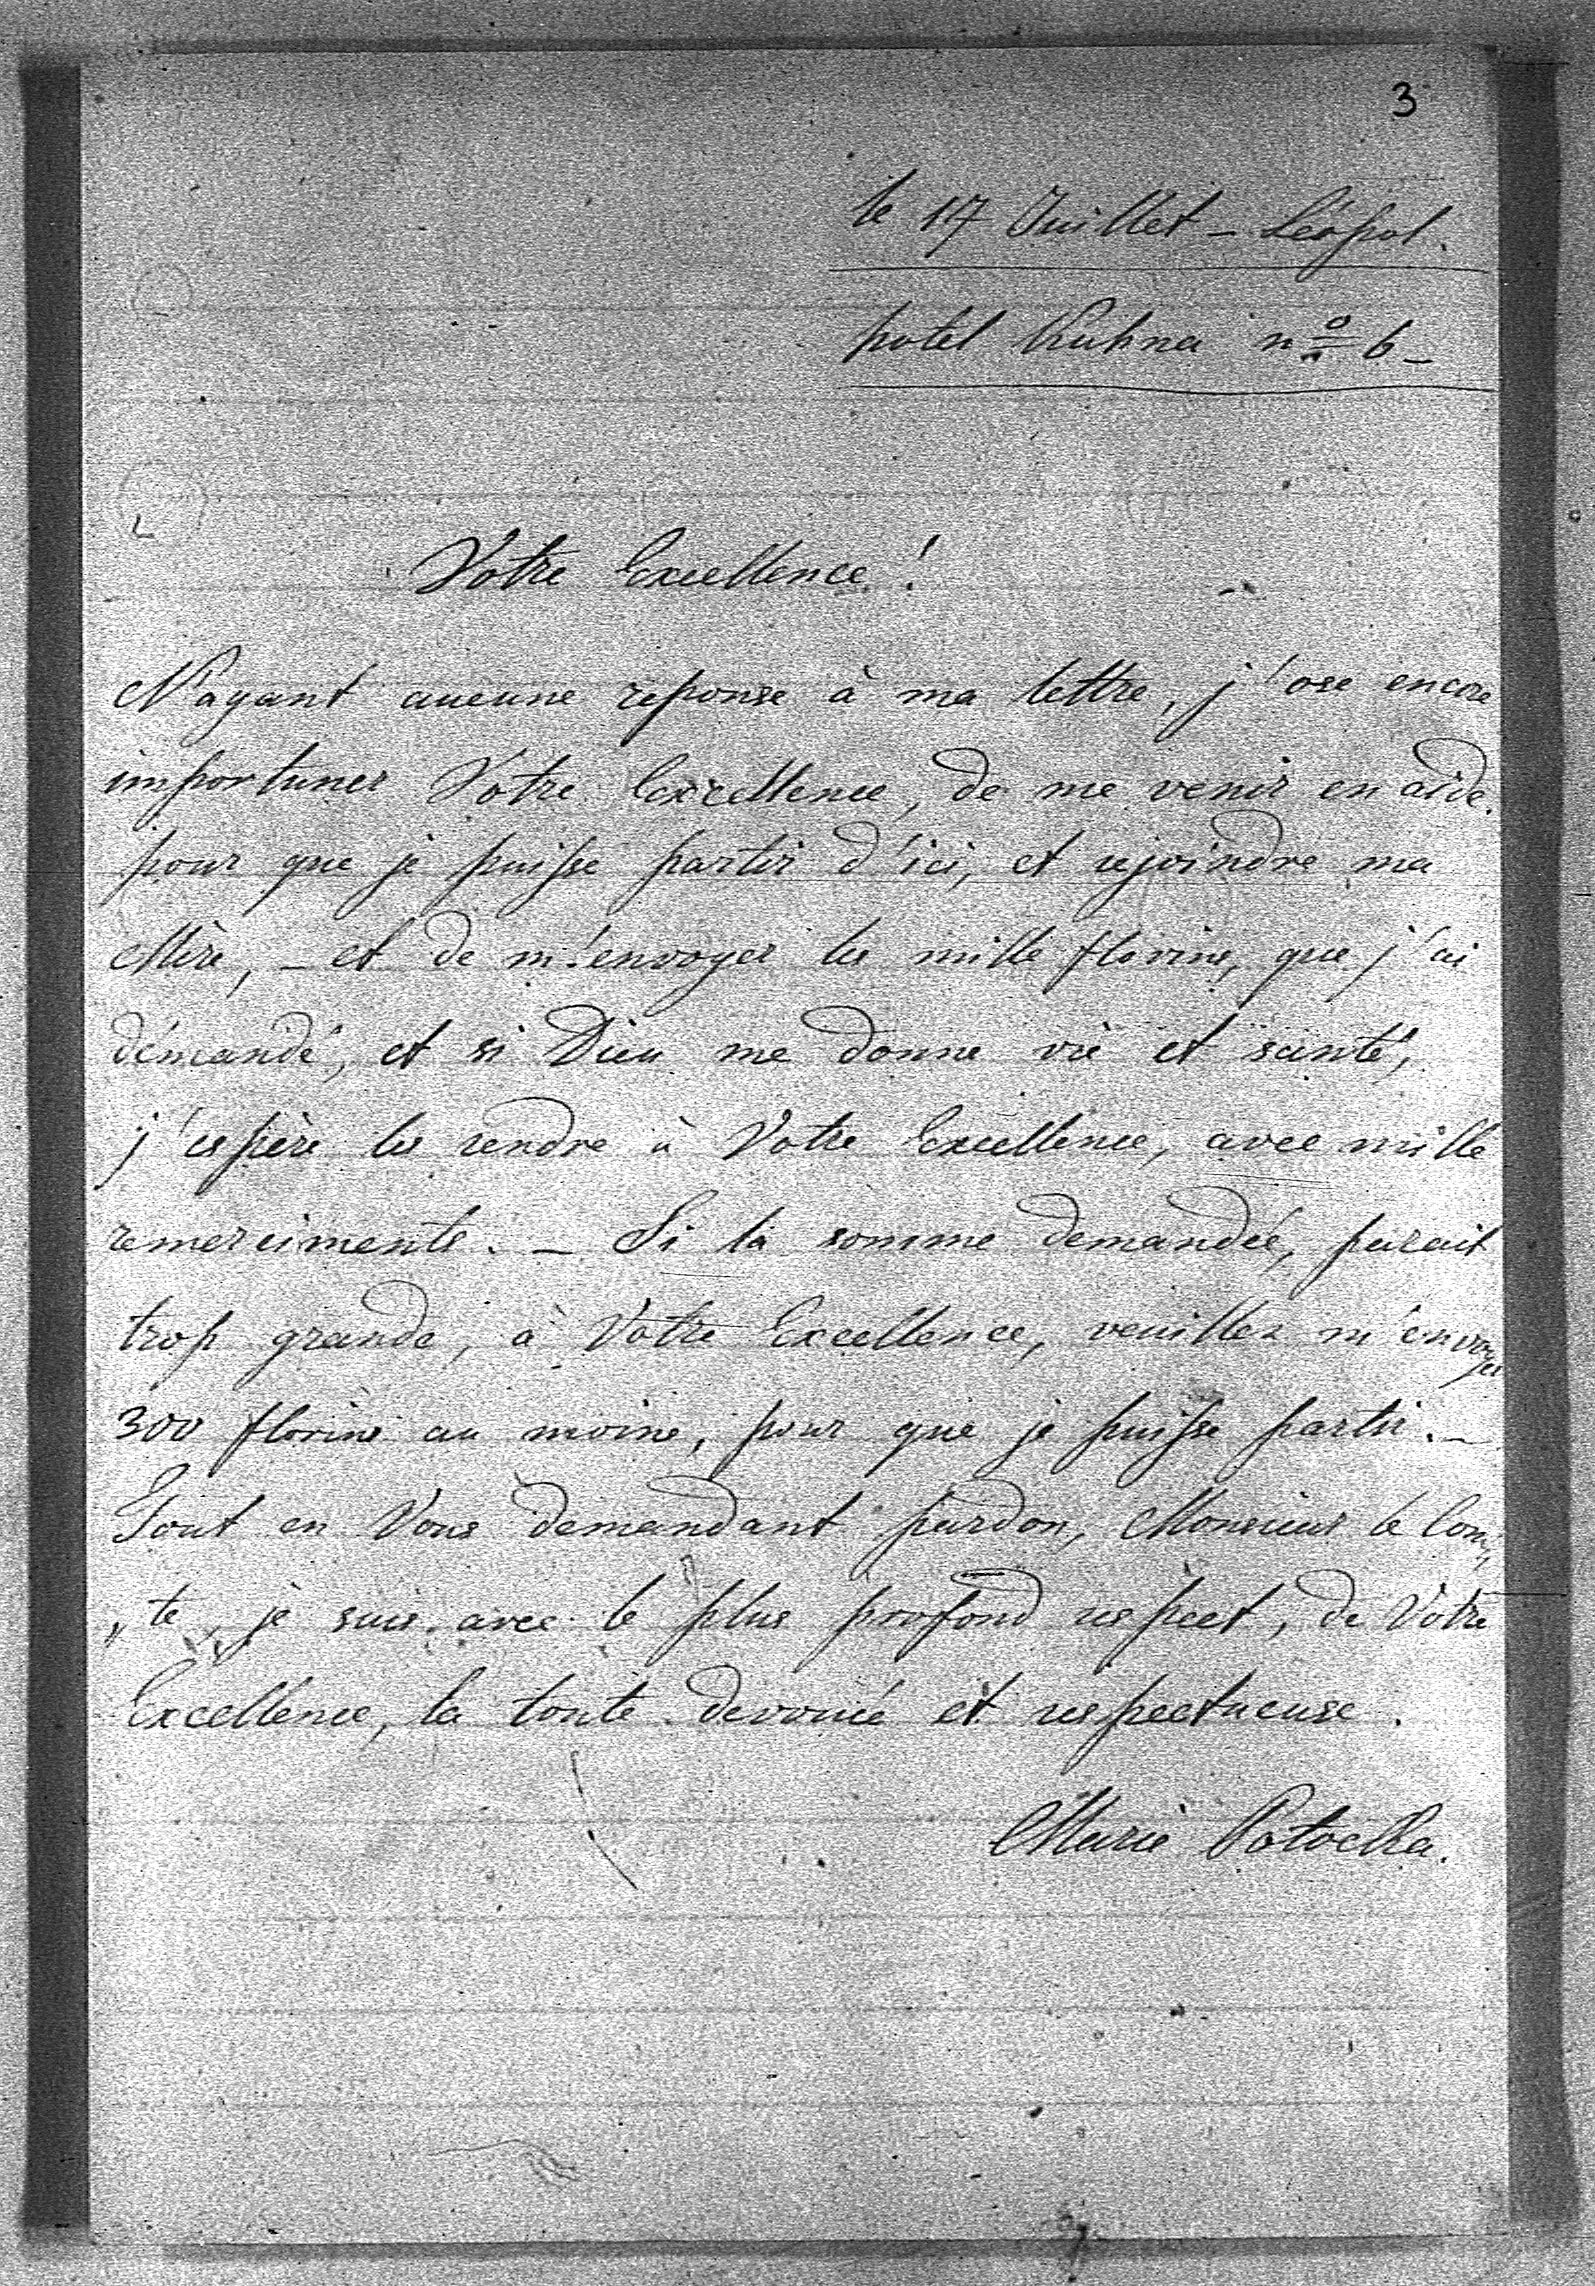 3
le 17 Juillet – Léopol.
hotel Kuhna nº 6 –
Votre Excellence!
N'ayant aucune reponse à ma lettre, j'ose encore
importuner Votre Excellence, de me venir en aide.
pour que je puisse partir d'ici, et rejoindre ma
Mère, – et de m'envoyer les mille florins, que j'ai
démandé, et si Dieu me donne vie et santé,
j'espère les rendre à Votre Excellence, avec mille
remerciments. – Si la somme demandée, parait
trop grande, à Votre Excellence, veuillez m'envoyer
300 florins au moins, pour que je puisse partir. –
Tout en Vous demandant pardon, Monsieur le Com„
„te, je suis avec le plus profond respect, de Votre
Excellence, la toute devouée et respectueuse.
Marie Potocka.